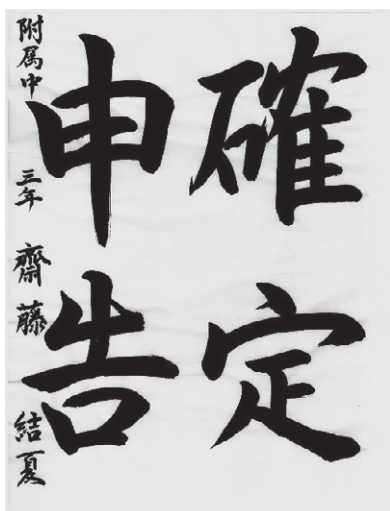 確定
申告
附属中 三年 齋藤 結夏